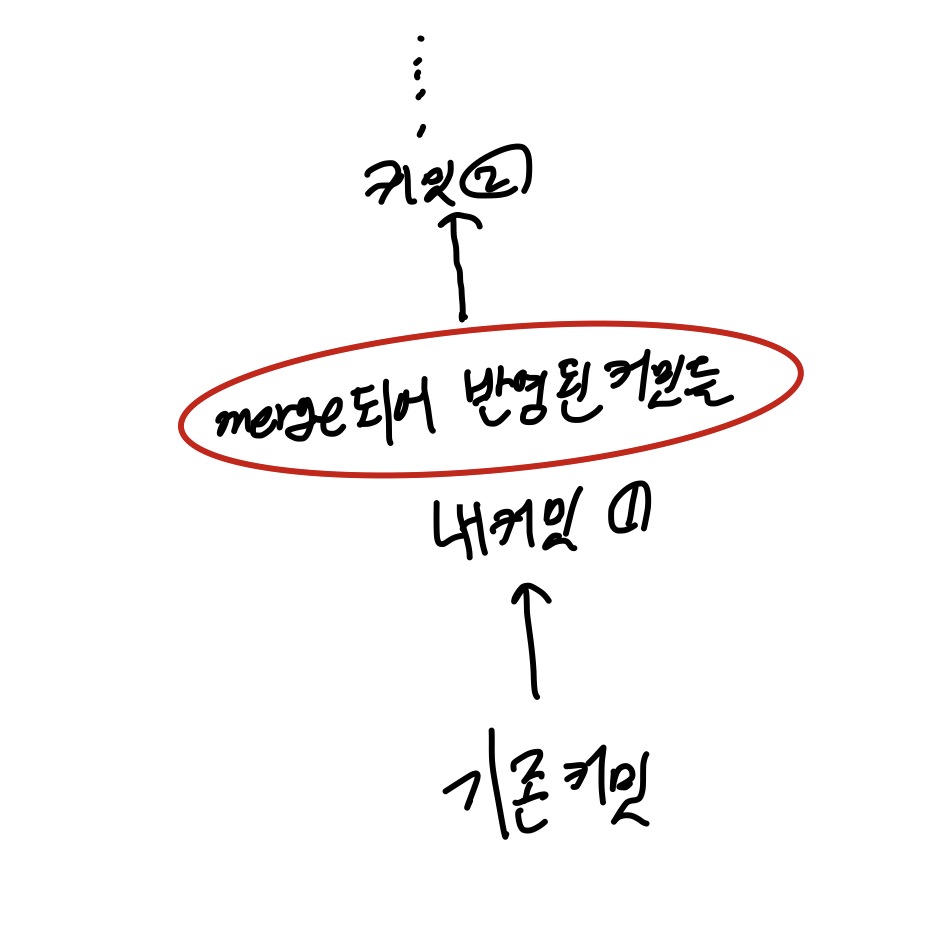 커밋 ②
merge되어 반영된 커밋들
내 커밋 ①
기존 커밋